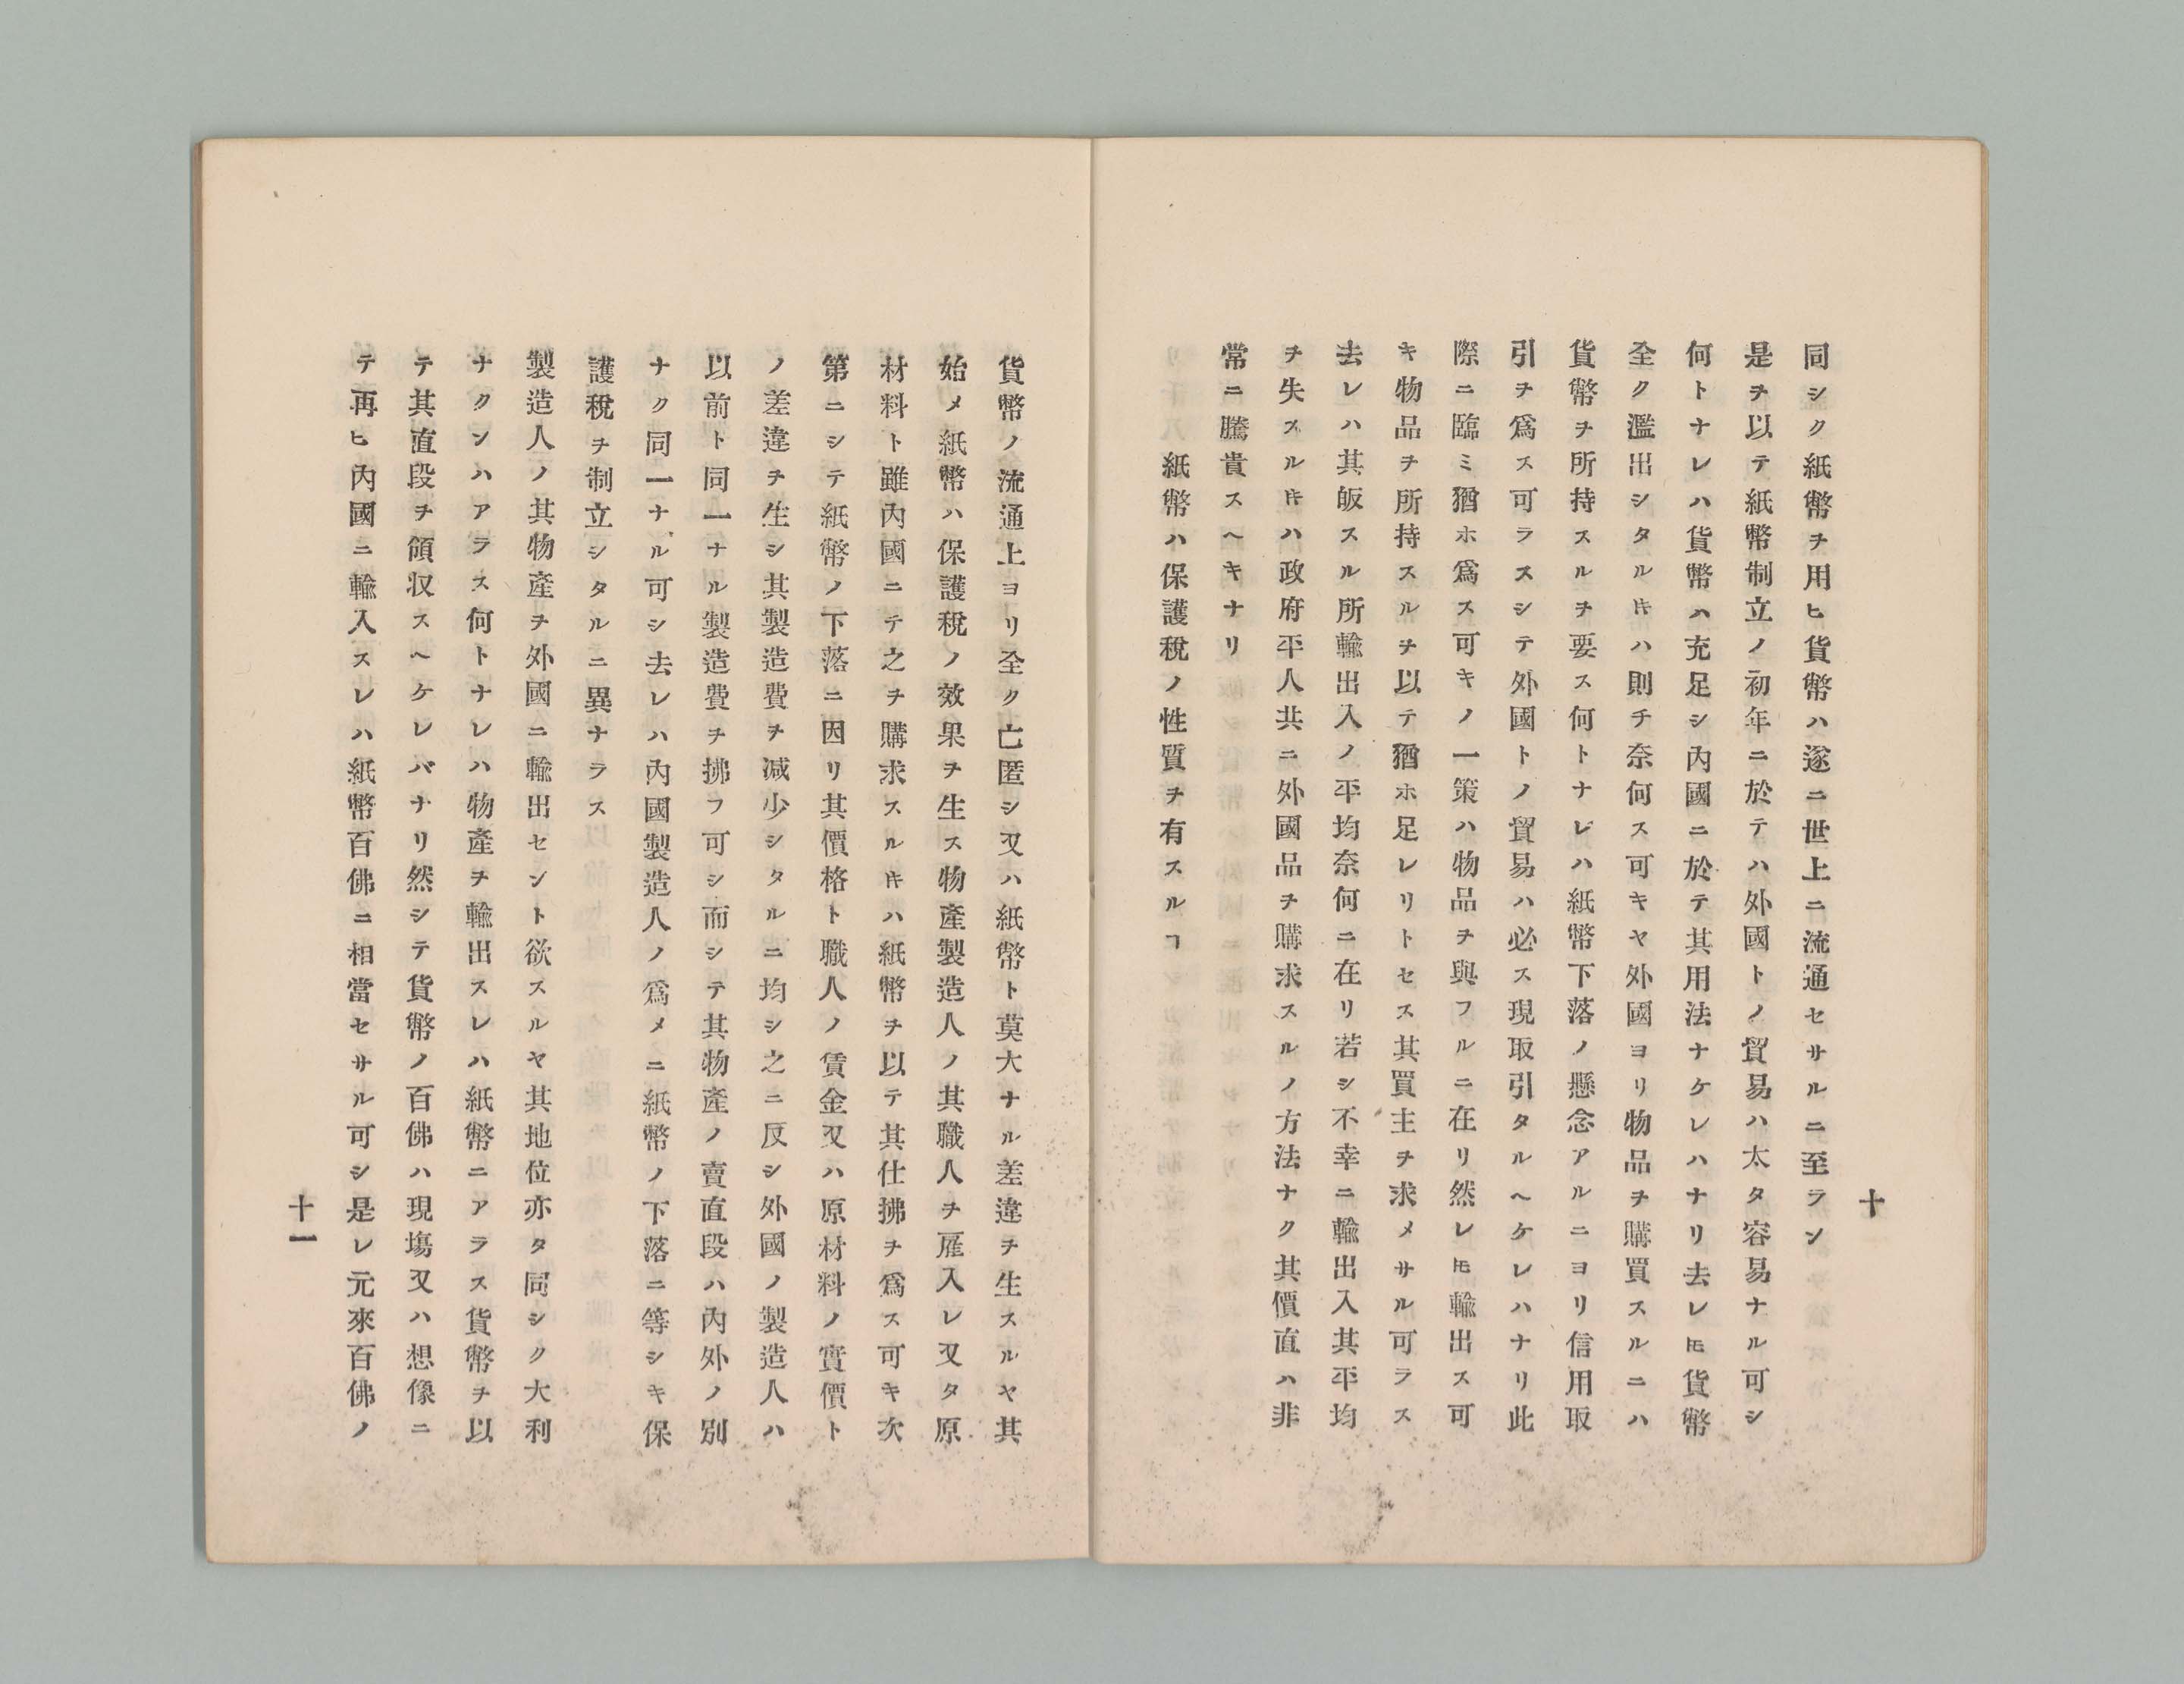 十
同シク紙幣ヲ用ヒ貨幣ハ遂ニ世上ニ流通セサルニ至ラン
是ヲ以テ紙幣制立ノ初年ニ於テハ外國トノ貿易ハ太タ容易ナル可シ
何トナレハ貨幣ハ充足シ內國ニ於テ其用法ナケレハナリ去レ𪜈貨幣
全ク濫出シタル𪜈ハ則チ奈何ス可キヤ外國ヨリ物品ヲ購買スルニハ
貨幣ヲ所持スルヲ要ス何トナレハ紙幣下落ノ懸念アルニヨリ信用取
引ヲ爲ス可ラスシテ外國トノ貿易ハ必ス現取引タルヘケレハナリ此
際ニ臨ミ猶ホ爲ス可キノ一策ハ物品ヲ與フルニ在リ然レ𪜈輸出ス可
キ物品ヲ所持スルヲ以テ猶ホ足レリトセス其買主ヲ求メサル可ラス
去レハ其皈スル所輸出入ノ平均奈何ニ在リ若シ不幸ニ輸出入其平均
ヲ失スル𪜈ハ政府平人共ニ外國品ヲ購求スルノ方法ナク其價直ハ非
常ニ騰貴スヘキナリ
紙幣ハ保護稅ノ性質ヲ有スルヿ
貨幣ノ流通上ヨリ全ク亡匿シ又ハ紙幣ト莫大ナル差違ヲ生スルヤ其
始メ紙幣ハ保護稅ノ效果ヲ生ス物產製造人ノ其職人ヲ雇入レ又タ原
材料ト雖內國ニテ之ヲ購求スル𪜈ハ紙幣ヲ以テ其仕拂ヲ爲ス可キ次
第ニシテ紙幣ノ下落ニ因リ其價格ト職人ノ賃金又ハ原材料ノ實價ト
ノ差違ヲ生シ其製造費ヲ減少シタルニ均シ之ニ反シ外國ノ製造人ハ
以前ト同一ナル製造費ヲ拂フ可シ而シテ其物產ノ賣直段ハ內外ノ別
ナク同一ナル可シ去レハ內國製造人ノ爲メニ紙幣ノ下落ニ等シキ保
護稅ヲ制立シタルニ異ナラス
製造人ノ其物產ヲ外國ニ輸出セント欲スルヤ其地位亦タ同シク大利
ナクンハアラス何トナレハ物產ヲ輸出スレハ紙幣ニアラス貨幣ヲ以
テ其直段ヲ領収スヘケレバナリ然シテ貨幣ノ百佛ハ現塲又ハ想像ニ
テ再ヒ內國ニ輸入スレハ紙幣百佛ニ相當セサル可シ是レ元來百佛ノ
十一